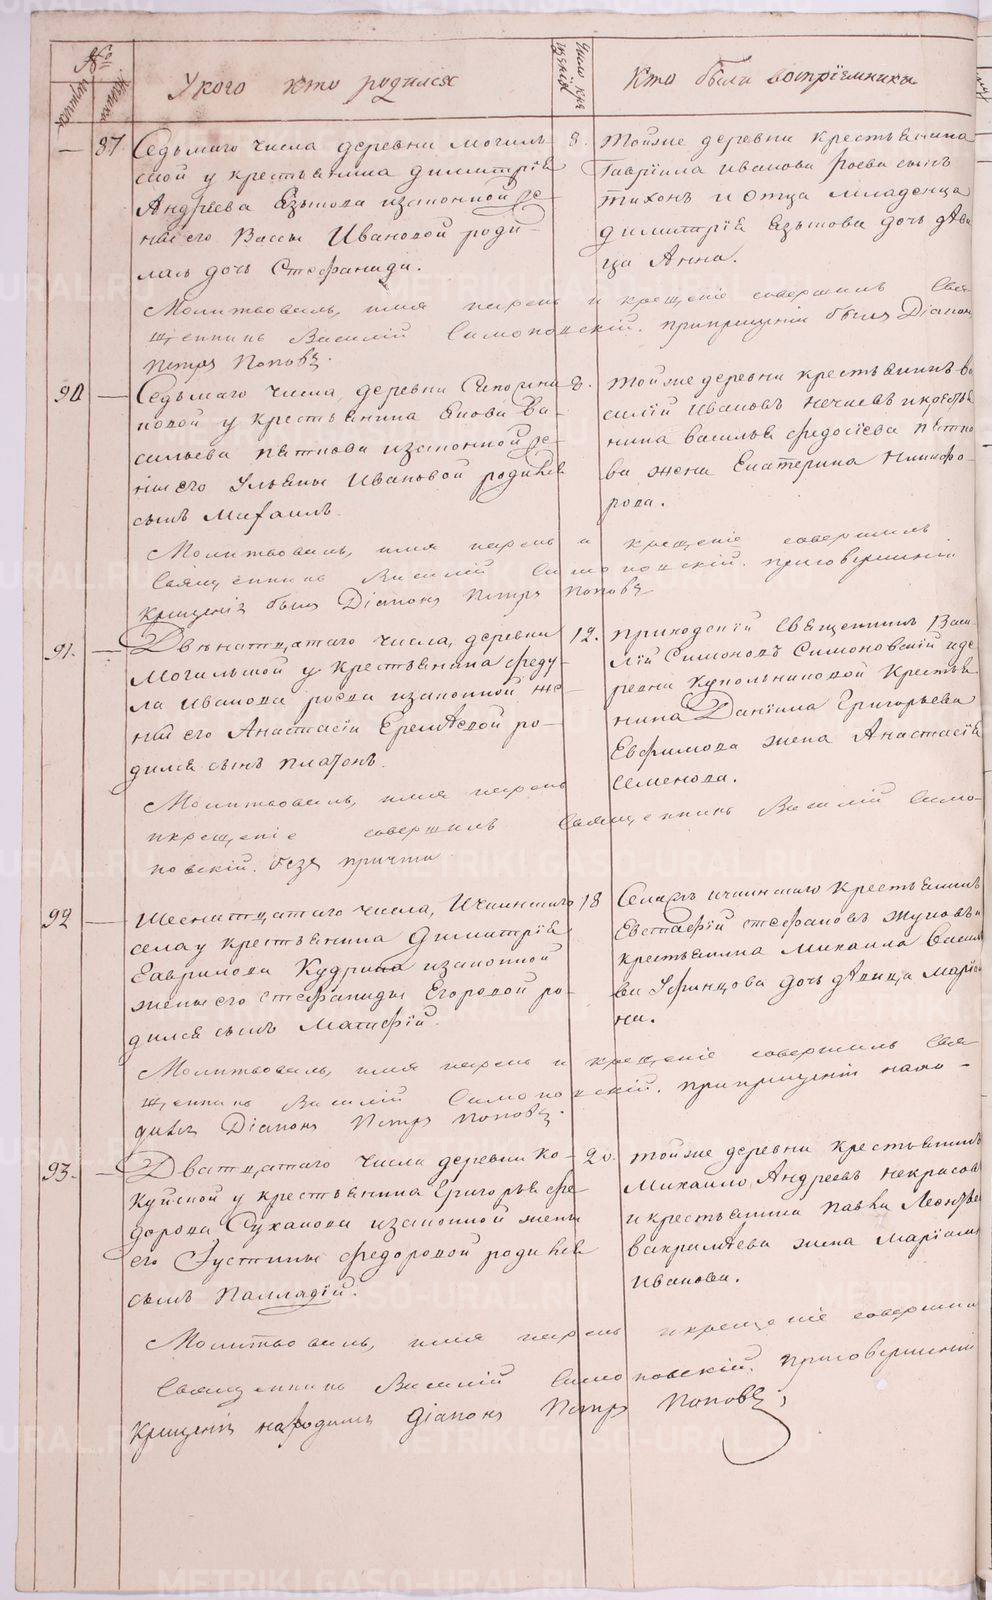 №
мужска
женска
У кого кто родился
Число кре
щенія
Кто были воспріемники
87
Седьмаго числа деревни Могиль
ской у крестьянина Димитрія
Андреева Язькова изаконной же
ны его Вассы Ивановой роди
лась дочь Стефанида.
8.
Тойже деревни крестьянина
Гавріила Иванова Роева сынъ
Тихонъ и отца младенца
Димитрія Язькова дочь дѣви
ца Анна.
Молитвовалъ, имя нарекъ и крещеніе совершилъ Свя
щенникъ Василій Симоновскій. при крещеніи былъ Діаконъ
Петръ Поповъ.
90
Седьмаго числа, деревни
новой у крестьянина Якова Ва
сильева Пяткова изаконной же
ны его Ульяны Ивановой родился
сынъ Михаилъ.
8.
Тойже деревни крестьянинъ Ва
силій Ивановъ и крестья
нина Василья Федосіева Пятко
ва жена Екатерина Никифо
рова.
Молитвовалъ, имя нарекъ и крещеніе совершилъ
Священникъ Василій Симоновскій. при совершеніи
Крещенія былъ Діаконъ Петръ Поповъ
91.
Двенатцатаго числа, деревни
Могильской у крестьянина Феду
ла Иванова Роева изаконной же
ны его Анастасіи Еремѣевой ро
дился сынъ Платонъ.
12.
Приходскій Священникъ Васи
лій Симоновъ Симоновскій иде
ревни Купольниковой Крестья
нина Даніила Григорьева
Евфимова жена Анастасія
Семенова.
Молитвовалъ, имя нарекъ
икрещеніе совершилъ Священникъ Василій Симо
новскій. безъ причта
92
Шеснатцатаго числа, Ичкинскаго
села у крестьянина Димитрія
Гаврилова Кудрина изаконной
жены его Стефаниды Егоровой ро
дился сынъ Матвѣй.
18
Села Ичкинскаго крестьянинъ
Евстафій Стефановъ Жуковъ и
крестьянина Михаила Василь
ева Уфинцова дочь дѣвица Марія
на.
Молитвовалъ, имя нарекъ и крещеніе совершилъ Свя
щенникъ Василій Симоновскій. При крещеніи нахо
дился Діаконъ Петръ Поповъ.
93.
Дватцатаго числа деревни Ко
куйской у крестьянина Григорья Фе
дорова Суханова изаконной жены
его Густины Федоровой родился
сынъ Палладій.
20.
Тойже деревни крестьянинъ
Михайло Андреевъ Некрасовъ
и крестьянина Павла Леонтье
ва жена Маріамна
Иванова.
Молитвовалъ, имя нарекъ икрещеніе совершилъ
Священникъ Василій Симоновскій. при совершеніи
Крещенія находился Діаконъ Петръ Поповъ
METRIKI.GASO-URAL.RU